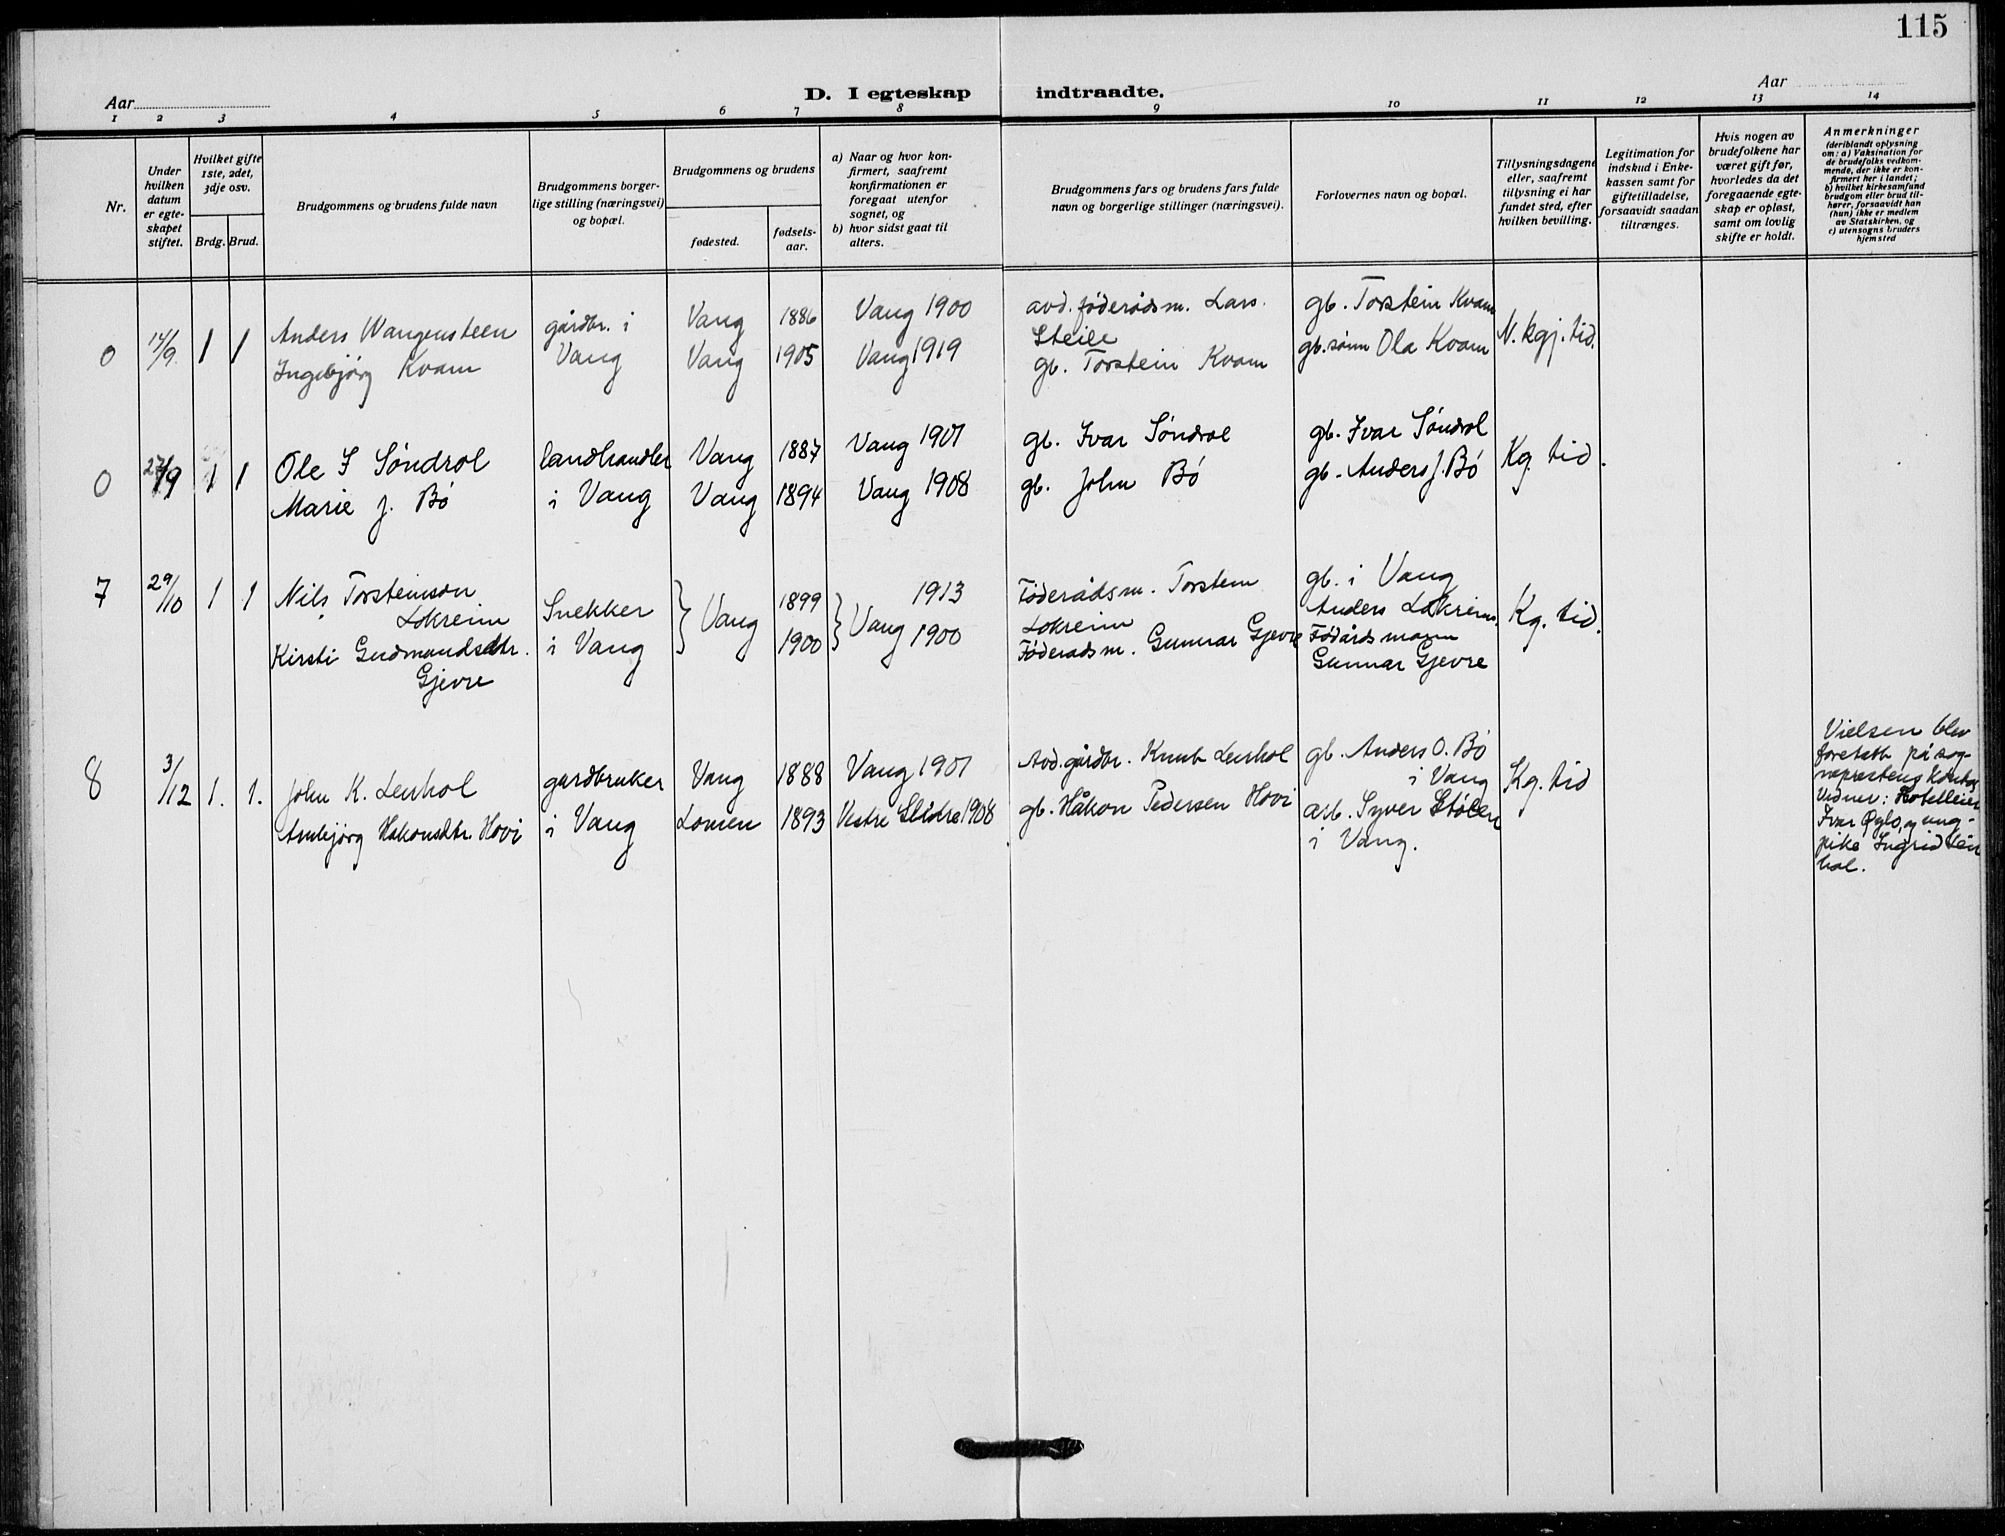 115
Aar
D. I egteskap indtraadte.
Aar
1 2 3 4 5 6 7 8 9 10 11 12 13 14
Nr.
Under
hvilken
datum
er egte-
skapet
stiftet.
Hvilket gifte
1ste, 2det,
3dje osv.
Brdg. Brud.
Brudgommens og brudens fulde navn
Brudgommens borger-
lige stilling (næringsvei)
og bopæl.
Brudgommens og brudens
fødested.
fødsels-
aar.
a) Naar og hvor kon-
firmert, saafremt
konfirmationen er
foregaat utenfor
sognet, og
b) hvor sidst gaat til
alters.
Brudgommens fars og brudens fars fulde
navn og borgerlige stillinger (næringsvei).
Forlovernes navn og bopæl.
Tillysningsdagene
eller, saafremt
tillysning ei har
fundet sted, efter
hvilken bevilling.
Legitimation for
indskud i Enke-
kassen samt for
giftetilladelse,
forsaavidt saadan
tiltrænges.
Hvis nogen av
brudefolkene har
været gift før,
hvorledes da det
foregaaende egte-
skap er opløst,
samt om lovlig
skifte er holdt.
Anmerkninger
(deriblandt oplysning
om: a) Vaksination for
de brudefolks vedkom-
mende, der ikke er kon-
firmert her i landet;
b) hvilket kirkesamfund
brudgom eller brud til-
hører, forsaavidt han
(hun) ikke er medlem
av Statskirken, og
c) utensogns bruders
hjemsted
0 14/9. 1 1
Anders Wangensteen
Ingebjørg Kvam
gårdbr. i
Vang
Vang 1886
Vang 1905
Vang 1900
Vang 1919
avd. föderådsm. Lars
Steile
gb. Torstein Kvam
gb. Torstein Kvam
gb. sønn Ola Kvam
N. kgj. tid.
0 27/9 1 1
Ole I Söndrol
Marie J. Bö
landhandler
i Vang
Vang 1887
Vang 1894
Vang 1901
Vang 1908
gb. Ivar Söndrol
gb. John Bö
gb. Ivar Söndrol
gb. Anders J. Bö
Kg. tid.
7 29/10 1 1
Nils Torsteinsön
Lokreim
Kirsti Gudmundsdtr.
Gjevre
Snekker
i Vang
Vang
1899
1900
Vang
1913
1900
Föderådsm. Torstein
Lokreim
Föderadsm. Gunnar Gjevre
gb. i Vang
Anders Lokreim.
Födårdsmann
Gunnar Gjevre
Kg. tid.
8 3/12 1. 1.
John K. Leirhol
Arnbjørg Hakonsdtr. Hovi
gardbruker
i Vang
Vang 1888
Lomen 1893
Vang 1901
Vestre Slidre 1908
Avd. gårdbr. Knut Leirhol
gb. Håkon Pedersen Hovi
gb. Anders O. Bö
i Vang
arb. Syver Stölen
i Vang.
Kg. tid
Vielsen blev
foretatt på sog-
neprestens kontor
Vidner: Hotelleier
Ivar Øylo, og ung-
pike Ingrid Leir
hol.